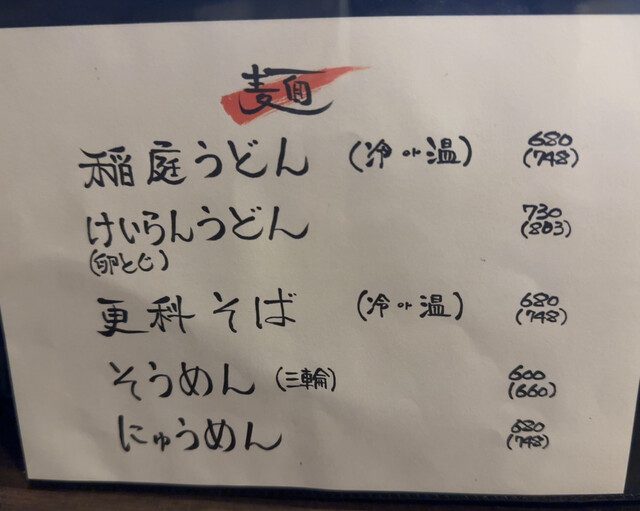 麺
稲庭うどん (冷or温) 680
(748)
けいらんうどん 730
(803)
(卵とじ)
更科そば (冷or温) 680
(748)
そうめん (三輪) 600
(660)
にゅうめん 680
(748)